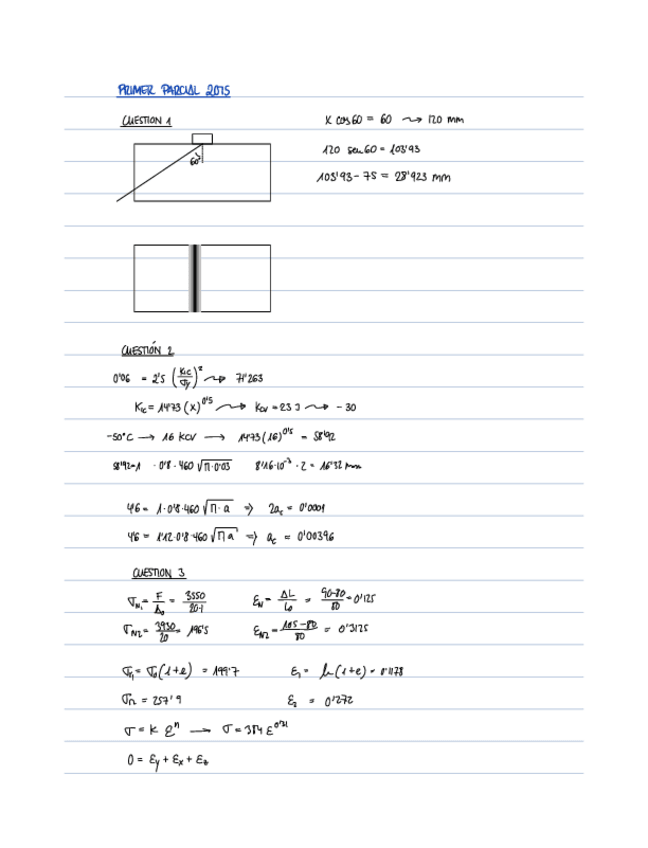 PRIMER PARCIAL 2015
CUESTION 1
X cos 60 = 60 ⤳ 120 mm
60º
120 sen 60 = 103'93
103'93 - 75 = 28'923 mm
CUESTIÓN 2
0'06 = 2'5 (KIC/σy)² ⤳ 71'263
KIC = 14'73 (x)^0'5 ⤳ KCV = 23 J ⤳ -30
-50ºC → 16 KCV → 14'73 (16)^0'5 = 58'92
58'92=1 · 0'8 · 460 √(π·0'03) 8'16·10⁻³ · 2 = 16'32 mm
4'6 = 1·0'8·460 √(π·a) ⇒ 2ac = 0'0001
4'6 = 1'12·0'8·460 √(π a) ⇒ ac = 0'00396
CUESTION 3
σN1 = F/A0 = 3550/20·1 EN = ΔL/L0 = 90-80/80 = 0'125
σN2 = 3930/20 = 196'5 EN2 = 105-80/80 = 0'3125
σr1 = σ0 (1+e) = 199'7 ε1 = ln (1+e) = 0'1178
σr2 = 257'9 ε2 = 0'272
σ = K ε^n → σ = 384 ε^0'31
0 = εy + εx + εz